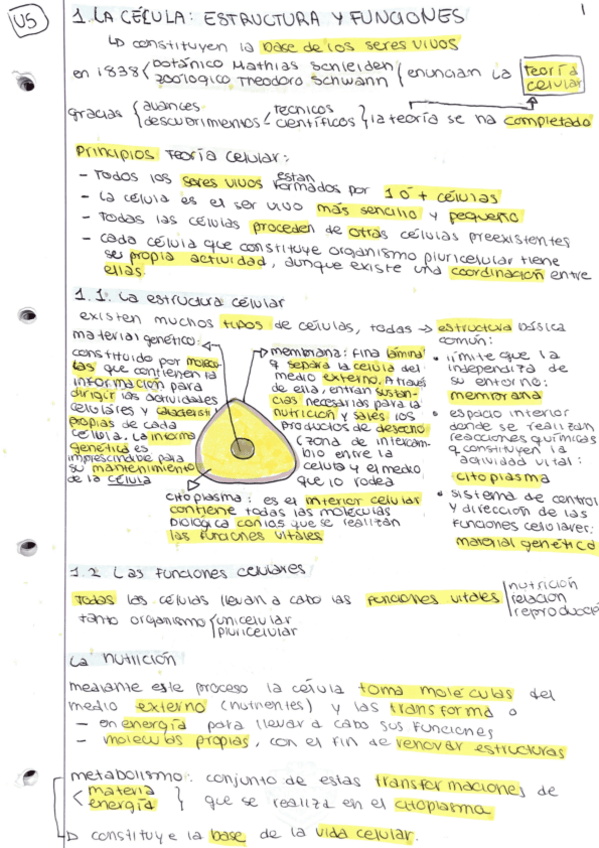 U5
1
1. LA CÉLULA: ESTRUCTURA Y FUNCIONES
↳ constituyen la base de los seres vivos
en 1838 < botánico Mathias Schleiden
zoologico Theodoro Schwann
{ enuncian la teoría celular
gracias { avances
descubrimientos < tecnicos
científicos } la teoría se ha completado
Principios Teoría celular:
- Todos los seres vivos están formados por 1 o + células
- La célula es el ser vivo más sencillo y pequeño
- Todas las células proceden de otras células preexistentes
- cada célula que constituye organismo pluricelular tiene
su propia actividad, aunque existe una coordinación entre
ellas.
1.1. La estructura celular
existen muchos tipos de células, todas → estructura básica
común:
material genético:
constituido por molécu-
las que contienen la
información para
dirigir las actividades
celulares y característi
propias de cada
célula. La informa
genética es
imprescindible para
su mantenimiento
de la célula
membrana: fina lámina
q separa la célula del
medio externo. A través
de ella, entran sustan-
cias necesarias para la
nutrición y sales los
productos de desecho
(zona de intercam-
bio entre la
celula y el medio
que lo rodea
citoplasma: es el interior celular
contiene todas las moléculas
biológica con los que se realizan
las funciones vitales
• límite que la
independiza de
su entorno:
membrana
• espacio interior
donde se realizan
reacciones químicas
q constituyen la
actividad vital:
citoplasma
• sistema de control
y dirección de las
funciones celulares:
material genético
1.2 Las funciones celulares
Todas las células llevan a cabo las funciones vitales
nutrición
relacion
reproducció
tanto organismo { unicelular
pluricelular
La nutrición
mediante este proceso la célula toma moléculas del
medio externo (nutrientes) y las transforma o
- en energía para llevar a cabo sus funciones
- moleculas propias, con el fin de renovar estructuras
metabolismo: conjunto de estas transformaciones de
< materia
energía } que se realiza en el citoplasma
constituye la base de la vida celular.